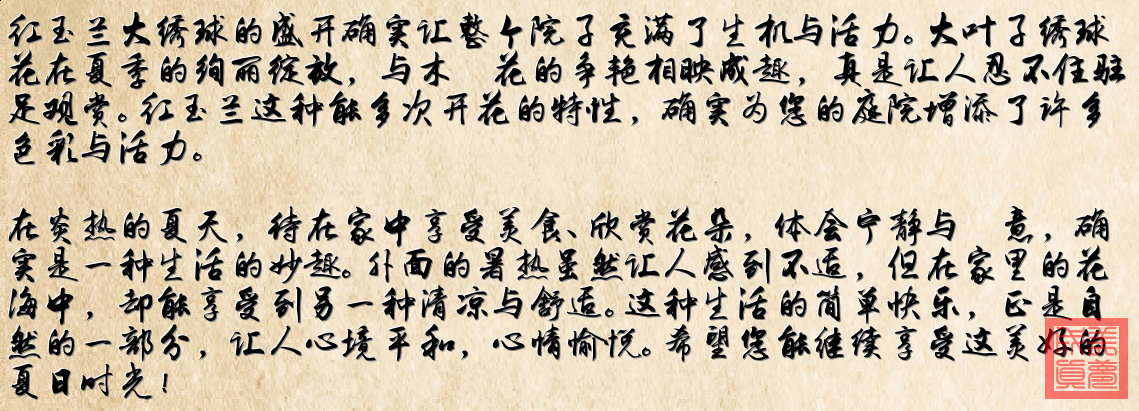 红玉兰大绣球的盛开确实让整个院子充满了生机与活力。大叶子绣球
花在夏季的绚丽绽放，与木 花的争艳相映成趣，真是让人忍不住驻
足观赏。红玉兰这种能多次开花的特性，确实为您的庭院增添了许多
色彩与活力。
在炎热的夏天，待在家中享受美食、欣赏花朵，体会宁静与 意，确
实是一种生活的妙趣。外面的暑热虽然让人感到不适，但在家里的花
海中，却能享受到另一种清凉与舒适。这种生活的简单快乐，正是自
然的一部分，让人心境平和，心情愉悦。希望您能继续享受这美好的
夏日时光！